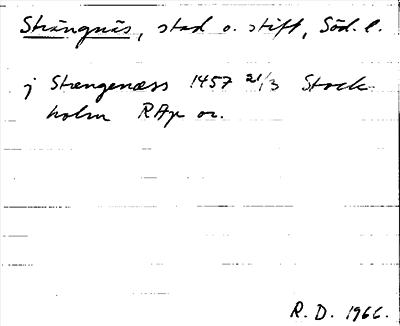 Strängnäs, stad o. stift, Söd. l.
j Strængenæss 1457 21/3 Stock-
holm RAp or.
R. D. 1966.